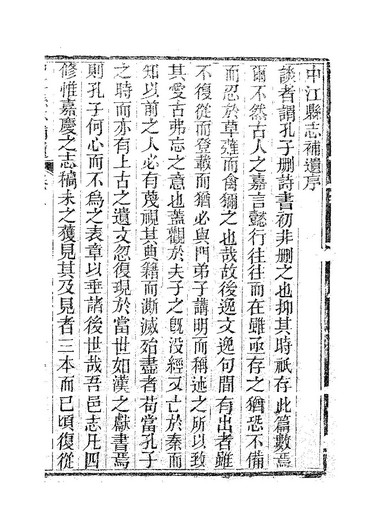 中江縣志補遺序
談者謂孔子刪詩書初非刪之也抑其時祇存此篇數焉
爾不然古人之嘉言懿行往往而在雖亟存之猶恐不備
而忍於草薙而禽獮之也哉故後逸文逸句間有出者雖
不復從而登載而猶必與門弟子講明而稱述之所以致
其愛古弗忘之意也蓋觀於夫子之旣沒經又亡於秦而
知以前之人必有蔑視其典籍而澌滅殆盡者苟當孔子
之時而亦有上古之遺文忽復現於當世如漢之獻書焉
則孔子何心而不爲之表章以垂諸後世哉吾邑志凡四
修惟嘉慶之志稿未之獲見其及見者三本而已頃復從